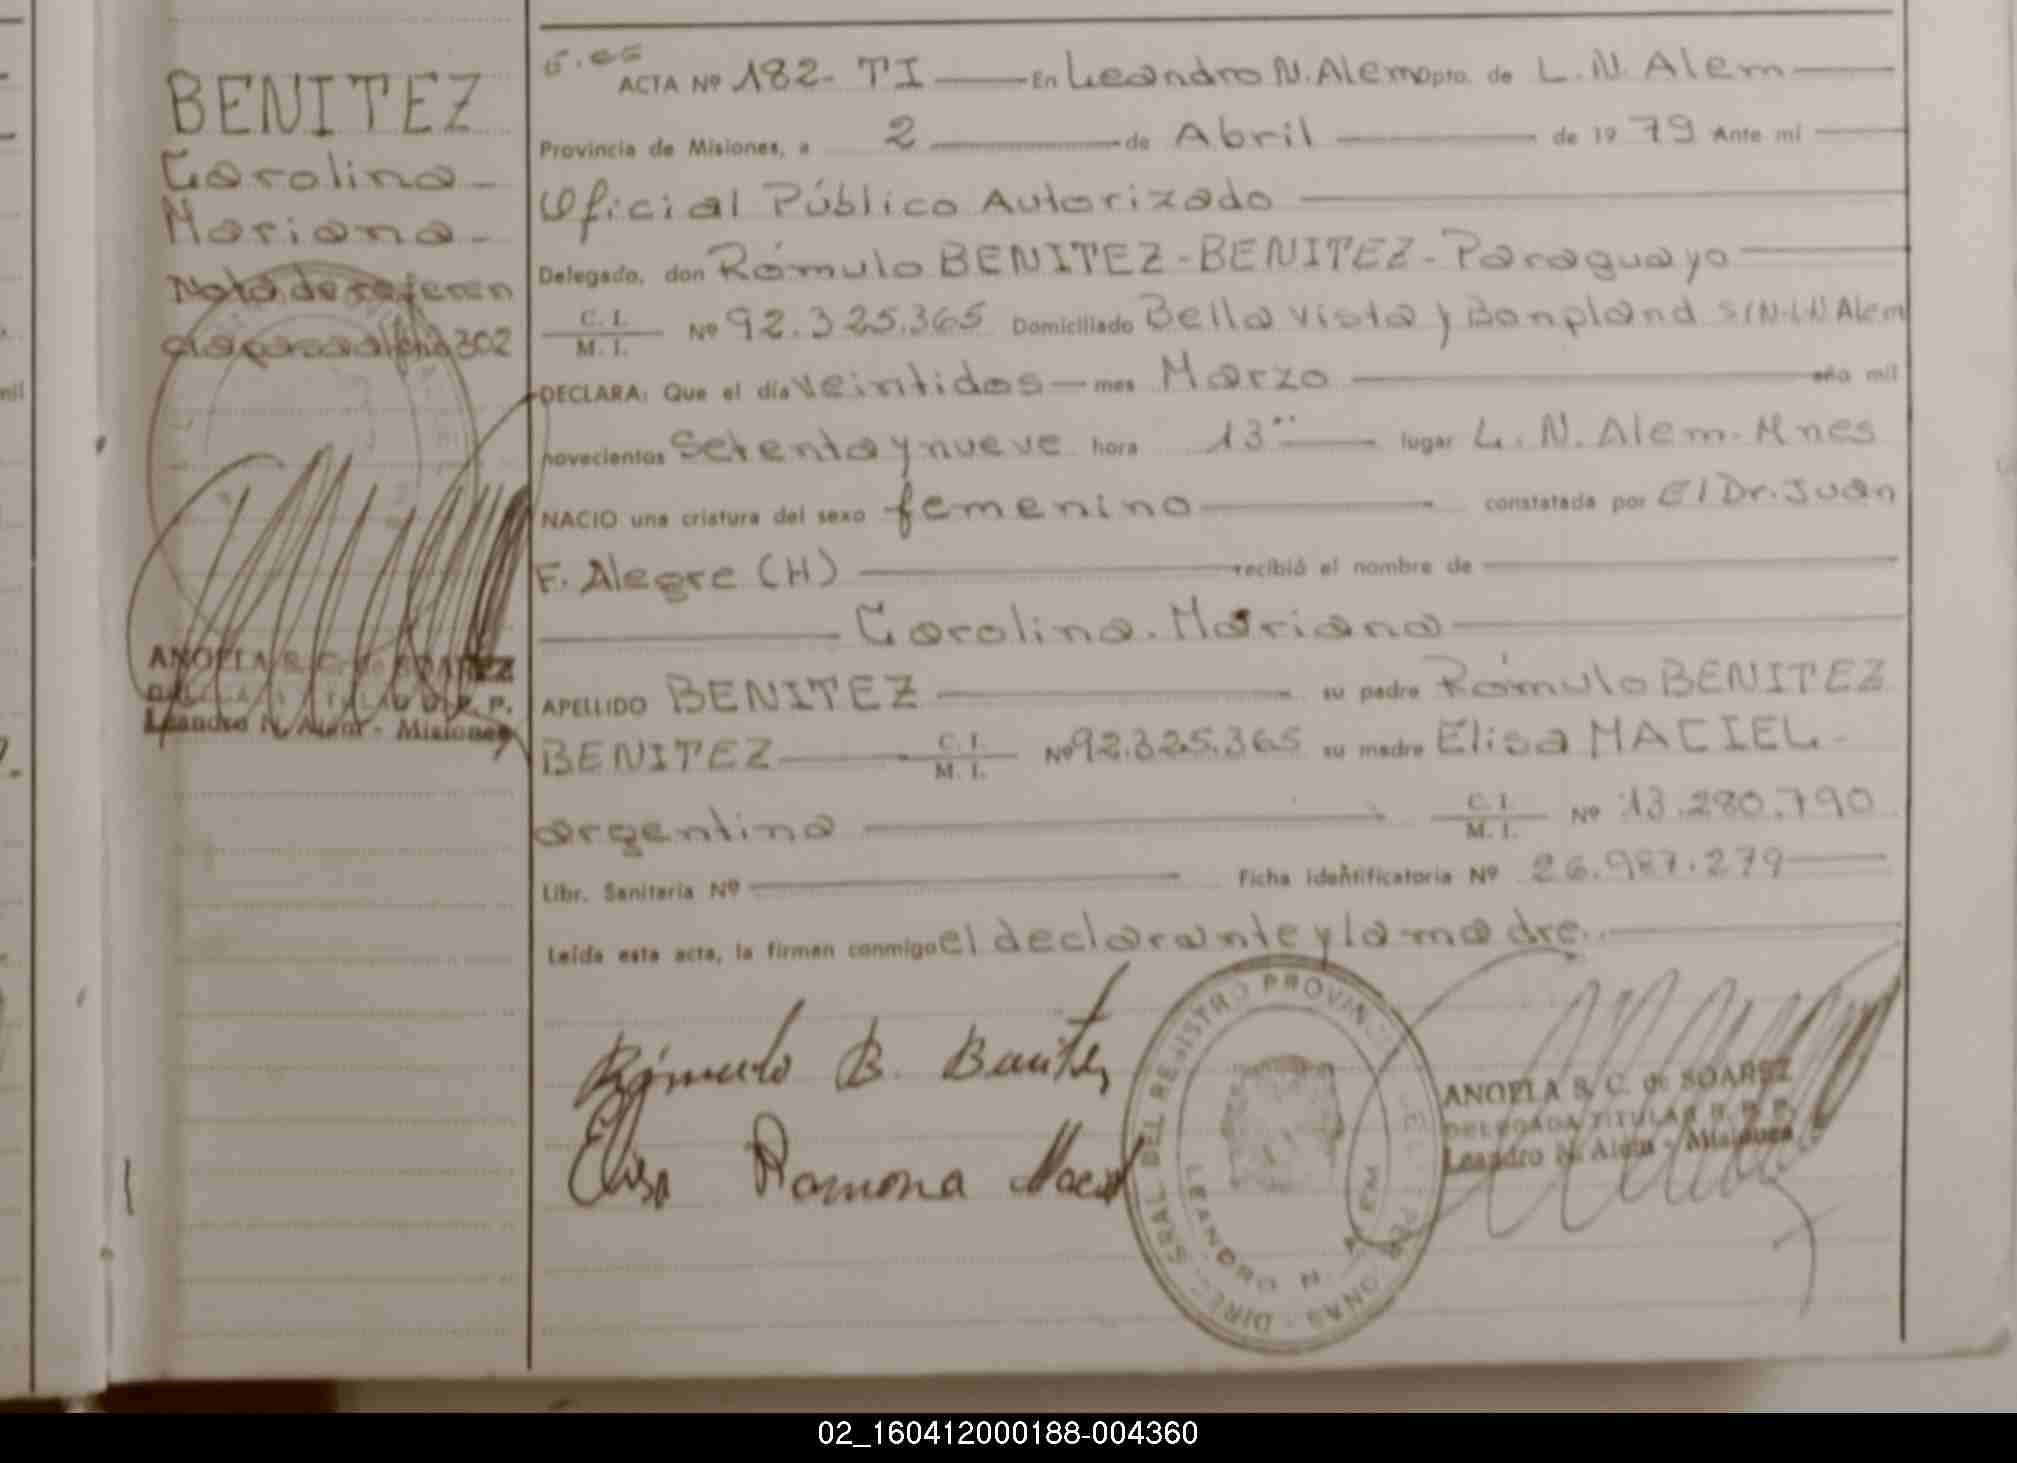 BENITEZ
Carolina-
Mariana-
Nota de referen
cia pasa al folio 302
ANGELA S. C. de SOAREZ
DELEGADA TITULAR R. P. P.
Leandro N. Alem - Misiones
ACTA Nº 182- TI En Leandro N. Alem Dpto. de L. N. Alem
Provincia de Misiones, a 2 de Abril de 19 79 Ante mi
Oficial Público Autorizado
Delegado, don Rómulo BENITEZ-BENITEZ-Paraguayo
C. I. / M. I. Nº 92.325.365 Domiciliado Bella Vista y Bonpland S/N-L.N Alem
DECLARA: Que el día veintidos mes Marzo año mil
novecientos setenta y nueve hora 13 lugar L. N. Alem. Mnes
NACIO una criatura del sexo femenino constatada por El Dr. Juan
F. Alegre (H) recibió el nombre de
Carolina. Mariana
APELLIDO BENITEZ su padre Rómulo BENITEZ
BENITEZ C. I. / M. I. Nº 92.325.365 su madre Elisa MACIEL-
argentina C. I. / M. I. Nº 13.280.790
Libr. Sanitaria Nº Ficha identificatoria Nº 26.987.279
Leída esta acta, la firman conmigo el declarante y la madre.
Rómulo B. Benítez
Elisa Ramona Maciel
REGISTRO PROVINC
LEANDRO N. ALEM
ANGELA S. C. de SOAREZ
DELEGADA TITULAR R. P. P.
Leandro N. Alem - Misiones
02_160412000188-004360